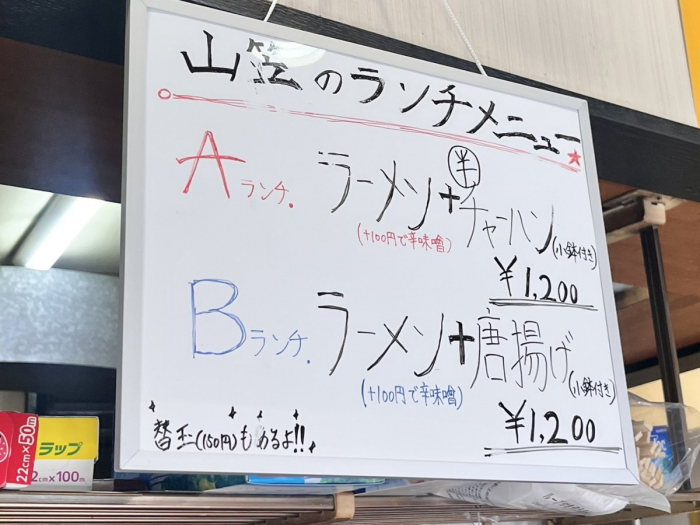 山笠のランチメニュー
Aランチ. ラーメン+半チャーハン(小鉢付き)
(+100円で辛味噌)
¥1,200
Bランチ. ラーメン+唐揚げ(小鉢付き)
(+100円で辛味噌)
¥1,200
替玉(150円)もあるよ!!
22cm×50m
ラップ
2cm×100m